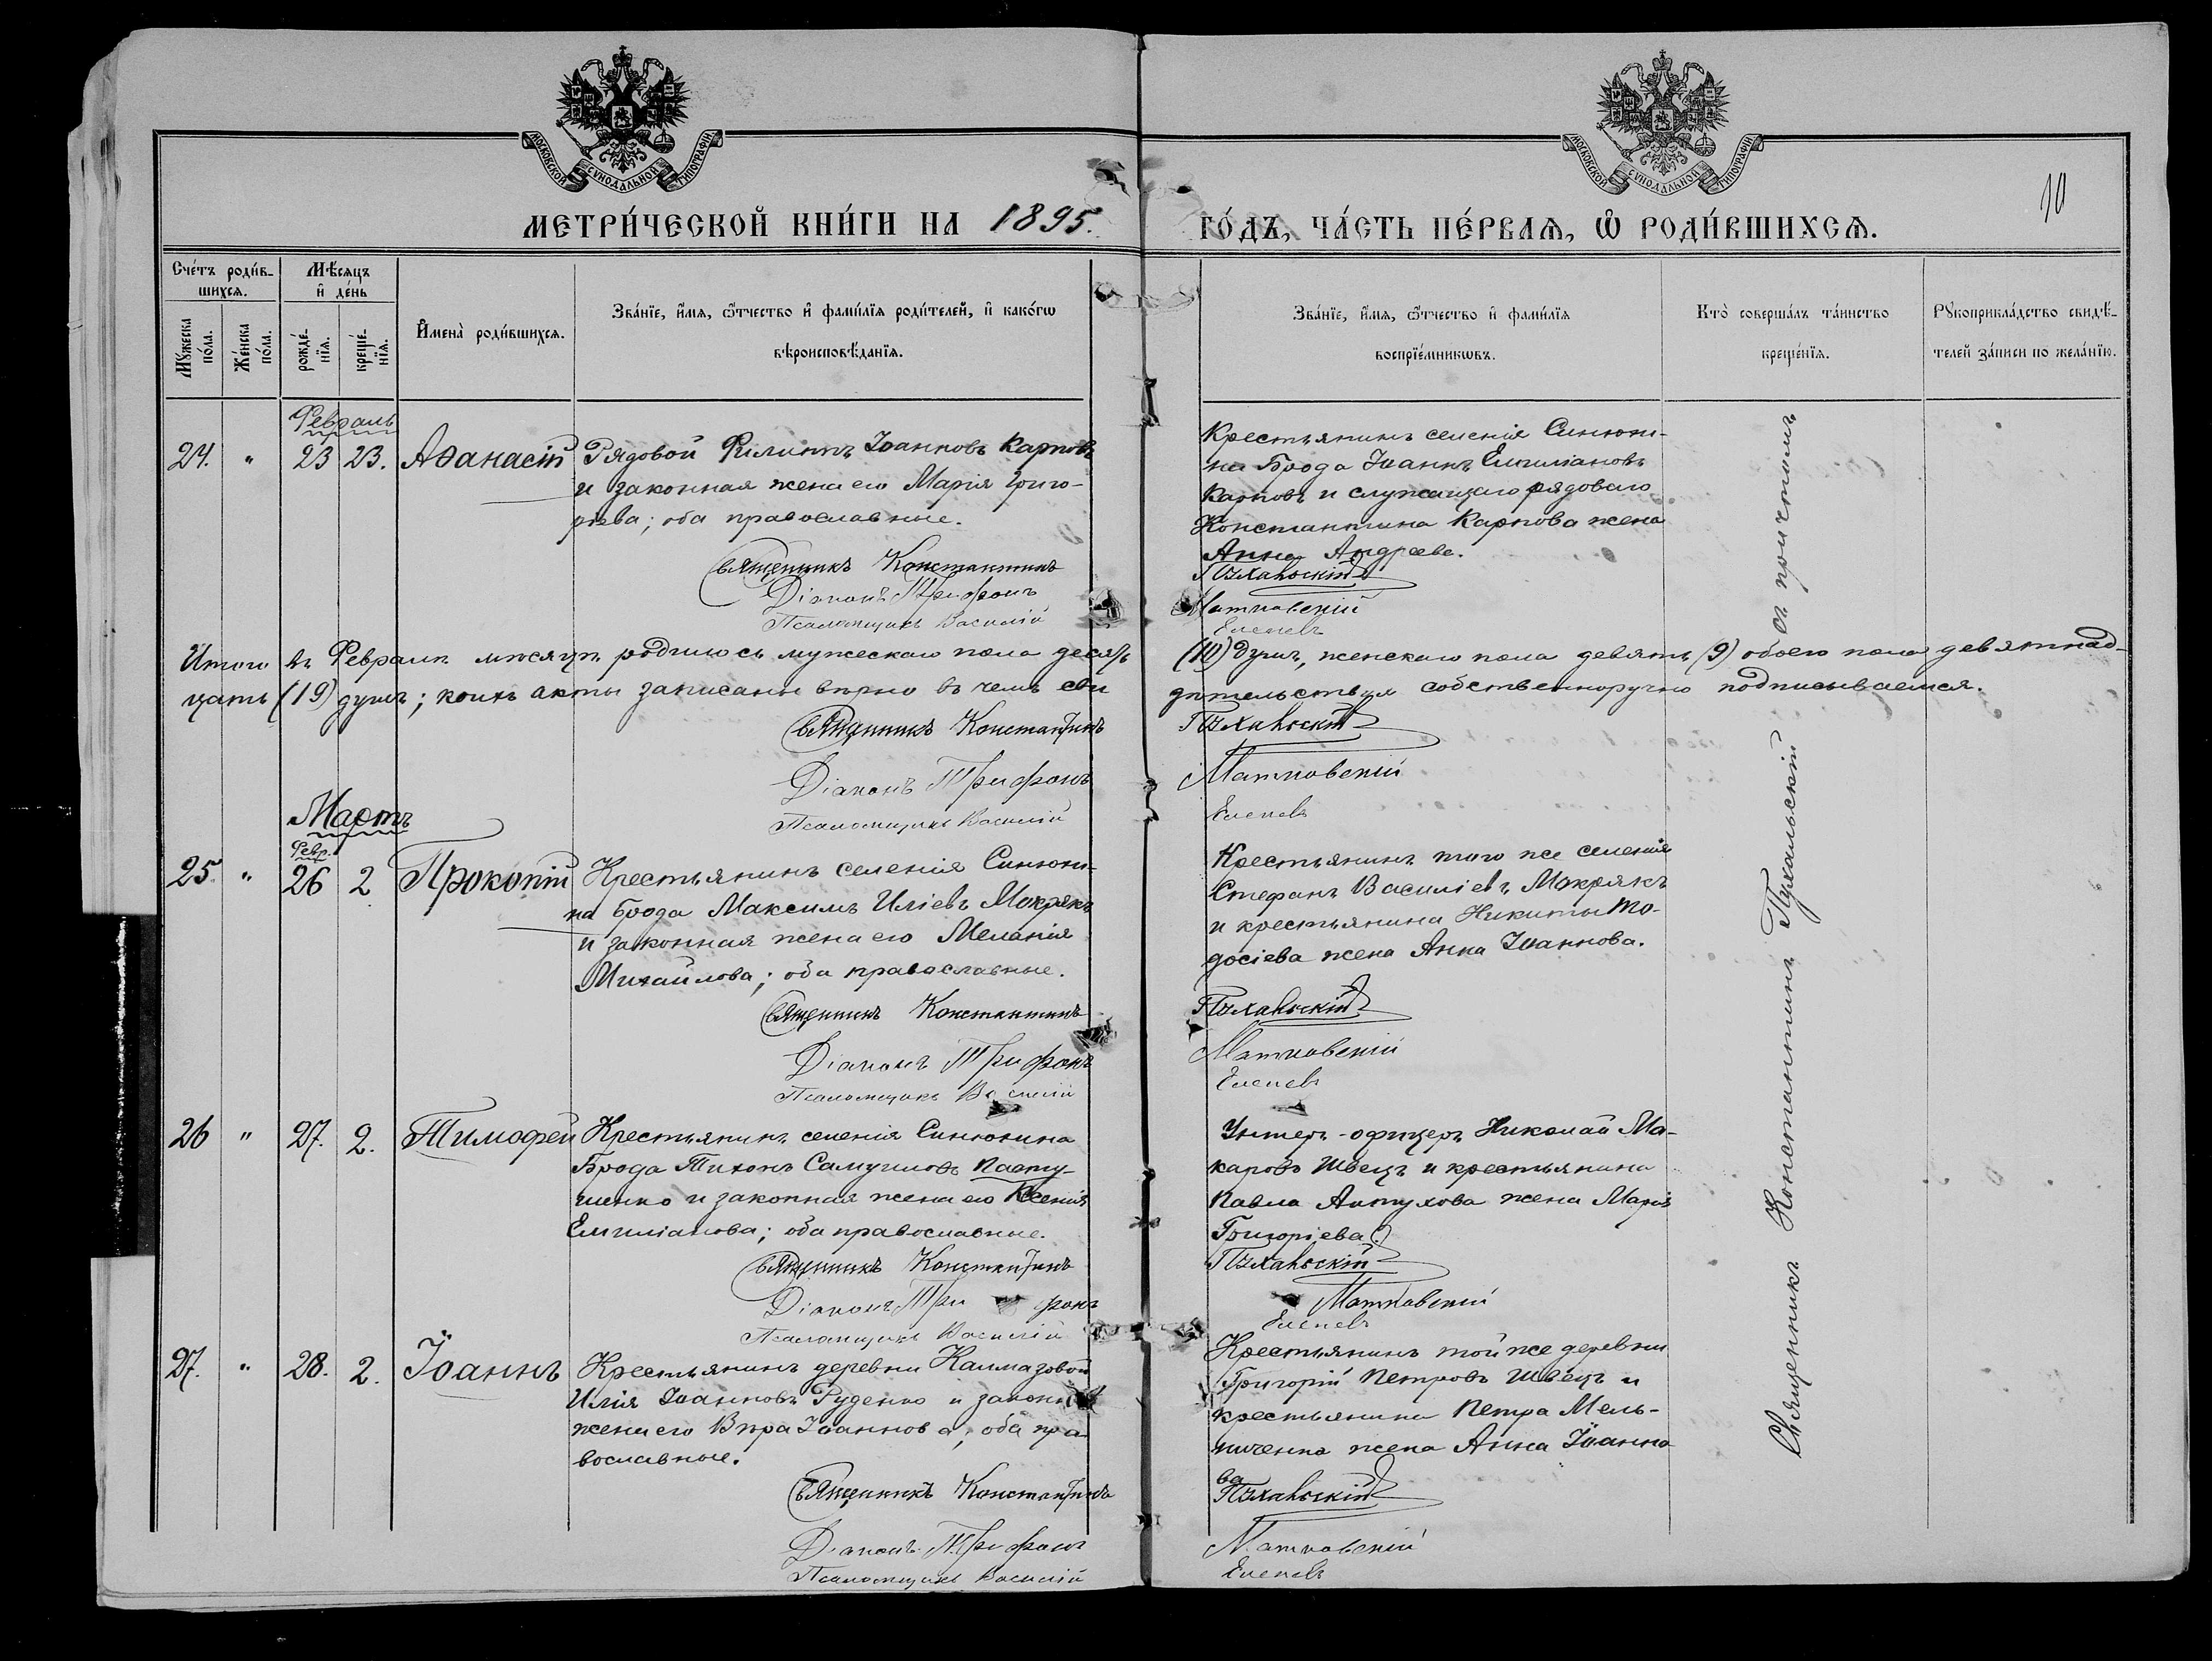 МОСКОВСКОЙ СѴНОДАЛЬНОЙ ТИПОГРАФІИ
МОСКОВСКОЙ СѴНОДАЛЬНОЙ ТИПОГРАФІИ
10
МЕТРИ́ЧЕСКОЙ КНИ́ГИ НА 1895. ГО́ДЪ, ЧА́СТЬ ПЕ́РВАѦ, Ѡ҆ РОДИ́ВШИХСѦ.
Сче́тъ роди́в-
шихсѧ.
Мѣ́сѧцъ
и҆ де́нь
Мꙋ́жеска
по́ла.
Же́нска
по́ла.
рожде́-
нїѧ.
креще́-
нїѧ.
И҆мена̀ роди́вшихсѧ.
Зва́нїе, и҆́мѧ, ѻ҆́тчество и҆ фами́лїѧ роди́телей, и҆ како́гѡ
вѣроисповѣ́данїѧ.
Зва́нїе, и҆́мѧ, ѻ҆́тчество и҆ фами́лїѧ
воспрїе́мникѡвъ.
Кто̀ соверша́лъ та́инство
креще́нїѧ.
Рꙋкоприкла́дство свидѣ́-
телей за́писи по жела́нїю.
Февраль
24. " 23 23. Аѳанасій Рядовой Филиппъ Іоанновъ Карповъ
и законная жена его Марія Григо-
рьева; оба православные.
Священникъ Константинъ
Діаконъ Трифонъ
Псаломщикъ Василій
Крестьянинъ селенія Синюхи-
на Брода Іоаннъ Емиліановъ
Карповъ и служащаго рядоваго
Константина Карпова жена
Анна Андреева.
Пухальскій
Матковскій
Еленевъ
Итого въ Февралѣ мѣсяцѣ родилось мужескаго пола десять (10) душъ, женскаго пола девять (9) обоего пола девятнад-
цать (19) душъ; коихъ акты записаны вѣрно въ чемъ сви дѣтельствуя собственноручно подписываемся.
Священникъ Константинъ Пухальскій
Діаконъ Трифонъ Матковскій
Псаломщикъ Василій Еленевъ
Мартъ
Февр.
25 " 26 2 Прокопій Крестьянинъ селенія Синюхи-
на Брода Максимъ Иліевъ Мокрякъ
и законная жена его Меланія
Михайлова; оба православные.
Священникъ Константинъ
Діаконъ Трифонъ
Псаломщикъ Василій
Крестьянинъ того же селенія
Стефанъ Василіевъ Мокрякъ
и крестьянина Никиты
досіева жена Анна Іоаннова.
Пухальскій
Матковскій
Еленевъ
26 " 27. 2. Тимофей Крестьянинъ селенія Синюхина
Брода Тихонъ Самуиловъ Пасту-
шенко и законная жена его Ксенія
Емиліанова; оба православные.
Священникъ Константинъ
Діаконъ Трифонъ
Псаломщикъ Василій
Унтеръ-офицеръ Николай Ма-
каровъ Швецъ и крестьянина
Павла жена Марія
Григоріева.
Пухальскій
Матковскій
Еленевъ
27. " 28. 2. Іоаннъ Крестьянинъ деревни
Илія Іоанновъ Руденко и законная
жена его Вѣра Іоаннова; оба пра-
вославные.
Священникъ Константинъ
Діаконъ Трифонъ
Псаломщикъ Василій
Крестьянинъ той же деревни
Григорій Петровъ Швецъ и
крестьянина Петра Мель-
ниченка жена Анна Іоанно
ва
Пухальскій
Матковскій
Еленевъ
Священникъ Константинъ Пухальскій съ причтомъ